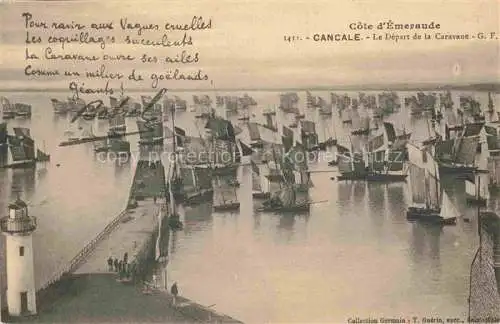 Pour ravir aux Vagues cruelles
Les coquillages succulents
La Caravane ouvre ses ailes
Comme un milier de goëlands,
Géants!
Côte d'Émeraude
1411. - CANCALE. - Le Départ de la Caravane - G. F.
Collection Germain - T. Guérin, succ., Saint-Malo